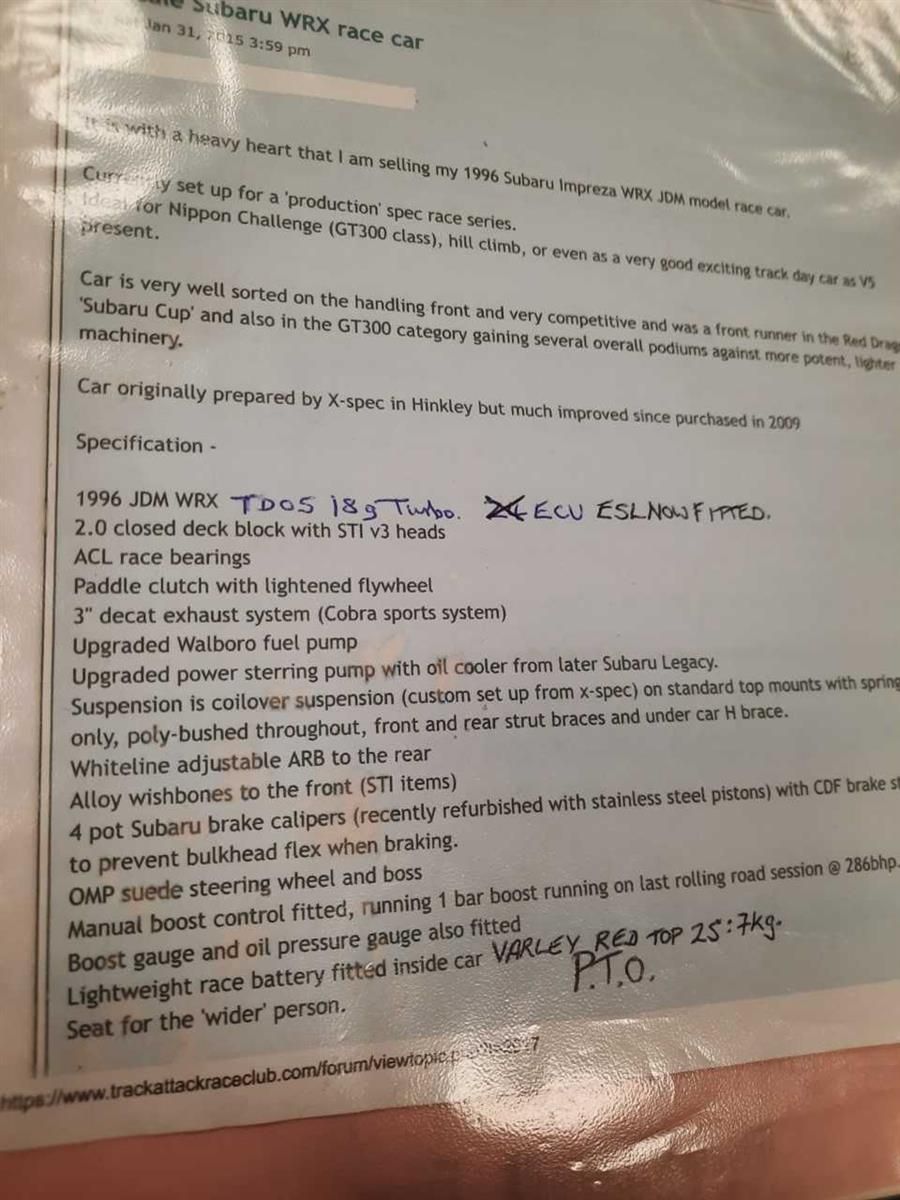 Subaru WRX race car
Jan 31, 2015 3:59 pm
It is with a heavy heart that I am selling my 1996 Subaru Impreza WRX JDM model race car.
Currently set up for a 'production' spec race series.
Ideal for Nippon Challenge (GT300 class), hill climb, or even as a very good exciting track day car as V5
present.
Car is very well sorted on the handling front and very competitive and was a front runner in the Red Drag
'Subaru Cup' and also in the GT300 category gaining several overall podiums against more potent, lighter
machinery.
Car originally prepared by X-spec in Hinkley but much improved since purchased in 2009
Specification -
1996 JDM WRX TD05 18g Turbo. ECU ESL NOW FITTED.
2.0 closed deck block with STI v3 heads
ACL race bearings
Paddle clutch with lightened flywheel
3" decat exhaust system (Cobra sports system)
Upgraded Walboro fuel pump
Upgraded power sterring pump with oil cooler from later Subaru Legacy.
Suspension is coilover suspension (custom set up from x-spec) on standard top mounts with spring
only, poly-bushed throughout, front and rear strut braces and under car H brace.
Whiteline adjustable ARB to the rear
Alloy wishbones to the front (STI items)
4 pot Subaru brake calipers (recently refurbished with stainless steel pistons) with CDF brake st
to prevent bulkhead flex when braking.
OMP suede steering wheel and boss
Manual boost control fitted, running 1 bar boost running on last rolling road session @ 286bhp.
Boost gauge and oil pressure gauge also fitted
Lightweight race battery fitted inside car VARLEY RED TOP 25:7kg.
P.T.O.
Seat for the 'wider' person.
https://www.trackattackraceclub.com/forum/viewtopic.p